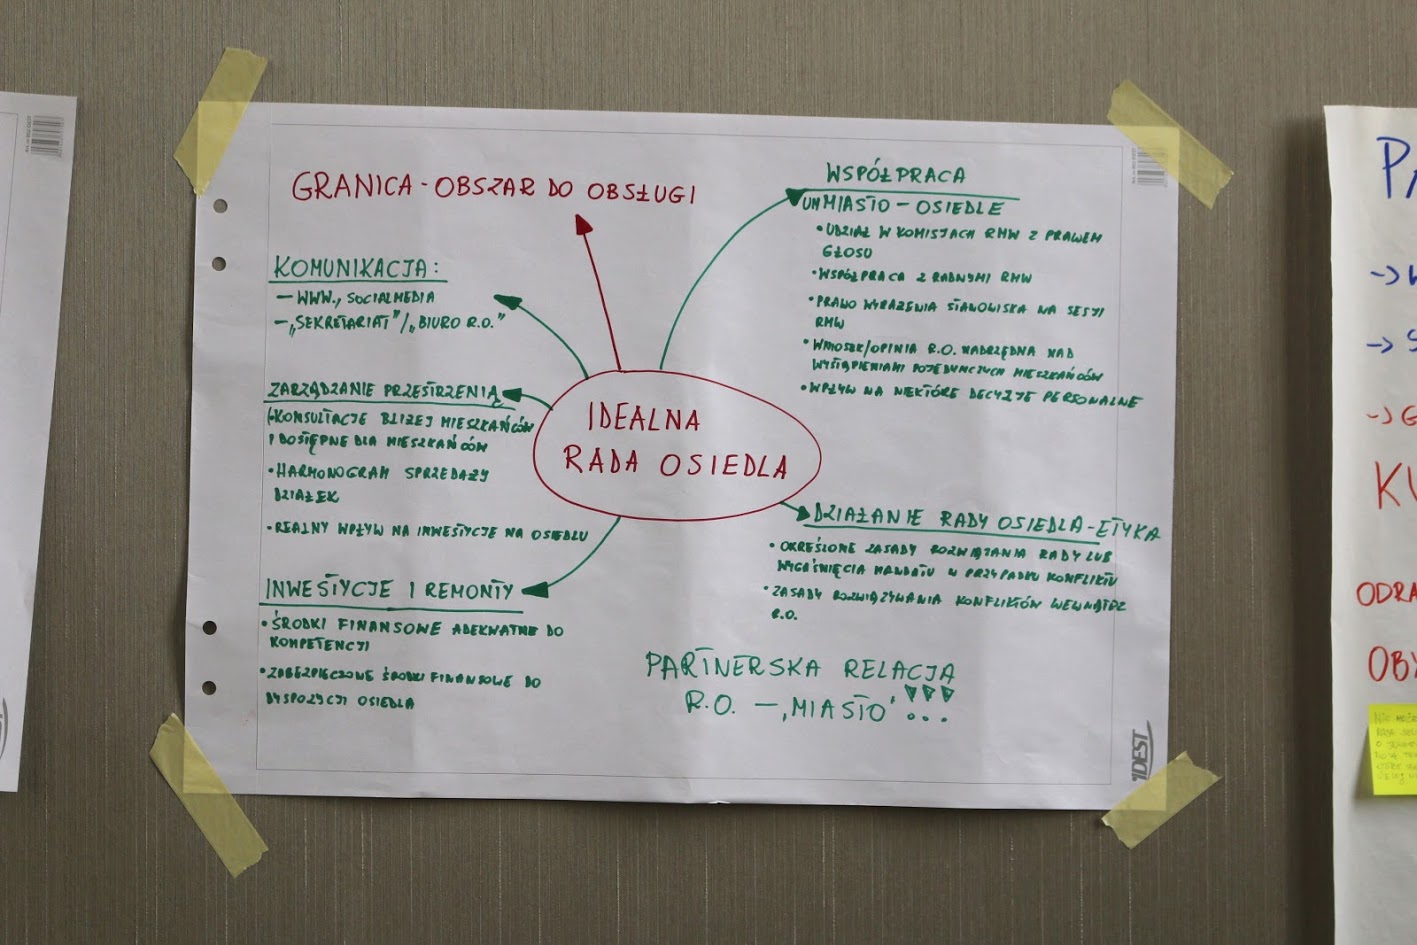 GRANICA - OBSZAR DO OBSŁUGI
KOMUNIKACJA:
— WWW., SOCIALMEDIA
— „SEKRETARIAT”/„BIURO R.O.”
ZARZĄDZANIE PRZESTRZENIĄ
• KONSULTACJE BLIŻEJ MIESZKAŃCÓW
I DOSTĘPNE DLA MIESZKAŃCÓW
• HARMONOGRAM SPRZEDAŻY
DZIAŁEK
• REALNY WPŁYW NA INWESTYCJE NA OSIEDLU
INWESTYCJE I REMONTY
• ŚRODKI FINANSOWE ADEKWATNE DO
KOMPETENCJI
• ZABEZPIECZONE ŚRODKI FINANSOWE DO
DYSPOZYCJI OSIEDLA
IDEALNA
RADA OSIEDLA
WSPÓŁPRACA
UM MIASTO - OSIEDLE
• UDZIAŁ W KOMISJACH RMW Z PRAWEM
GŁOSU
• WSPÓŁPRACA Z RADNYMI RMW
• PRAWO WYRAŻENIA STANOWISKA NA SESJI
RMW
• WNIOSEK/OPINIA R.O. NADRZĘDNA NAD
WYSTĄPIENIAMI POJEDYNCZYCH MIESZKAŃCÓW
• WPŁYW NA NIEKTÓRE DECYZJE PERSONALNE
DZIAŁANIE RADY OSIEDLA - ETYKA
• OKREŚLONE ZASADY ROZWIĄZANIA RADY LUB
WYGAŚNIĘCIA MANDATU W PRZYPADKU KONFLIKTU
• ZASADY ROZWIĄZYWANIA KONFLIKTÓW WEWNĄTRZ
R.O.
PARTNERSKA RELACJA
R.O. — „MIASTO” !!!
IDEST
ODRA
OBY